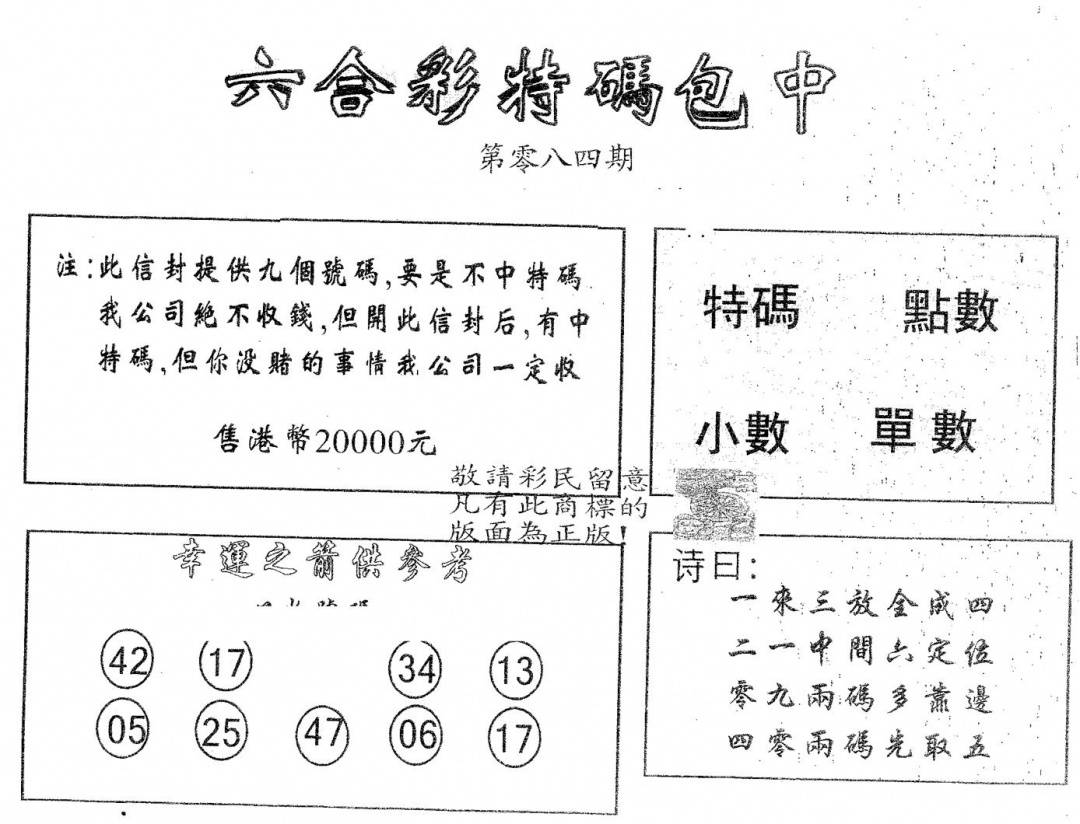 六合彩特碼包中
第零八四期
注:此信封提供九個號碼,要是不中特碼
我公司絕不收錢,但開此信封后,有中
特碼,但你没賭的事情我公司一定收
售港幣20000元
特碼 點數
小數 單數
敬請彩民留意
凡有此商標的
版面為正版!
幸運之箭供參考
42 17 34 13
05 25 47 06 17
诗曰:
一來三放金成四
二一中間六定位
零九兩碼多靠邊
四零兩碼先取五